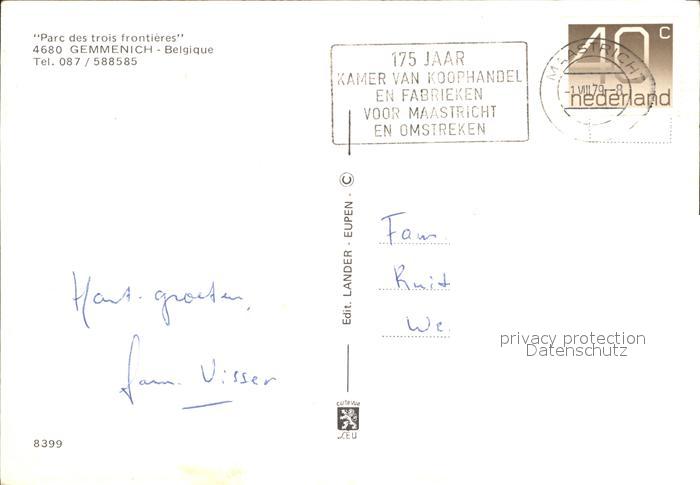 "Parc des trois frontières"
4680 GEMMENICH - Belgique
Tel. 087 / 588585
175 JAAR
KAMER VAN KOOPHANDEL
EN FABRIEKEN
VOOR MAASTRICHT
EN OMSTREKEN
MAASTRICHT
-1.VIII.79.-8
40 c
nederland
Edit. LANDER - EUPEN - ©
Fam.
Ruit
We.
privacy protection
Datenschutz
Hart. groeten,
fam. Visser
8399